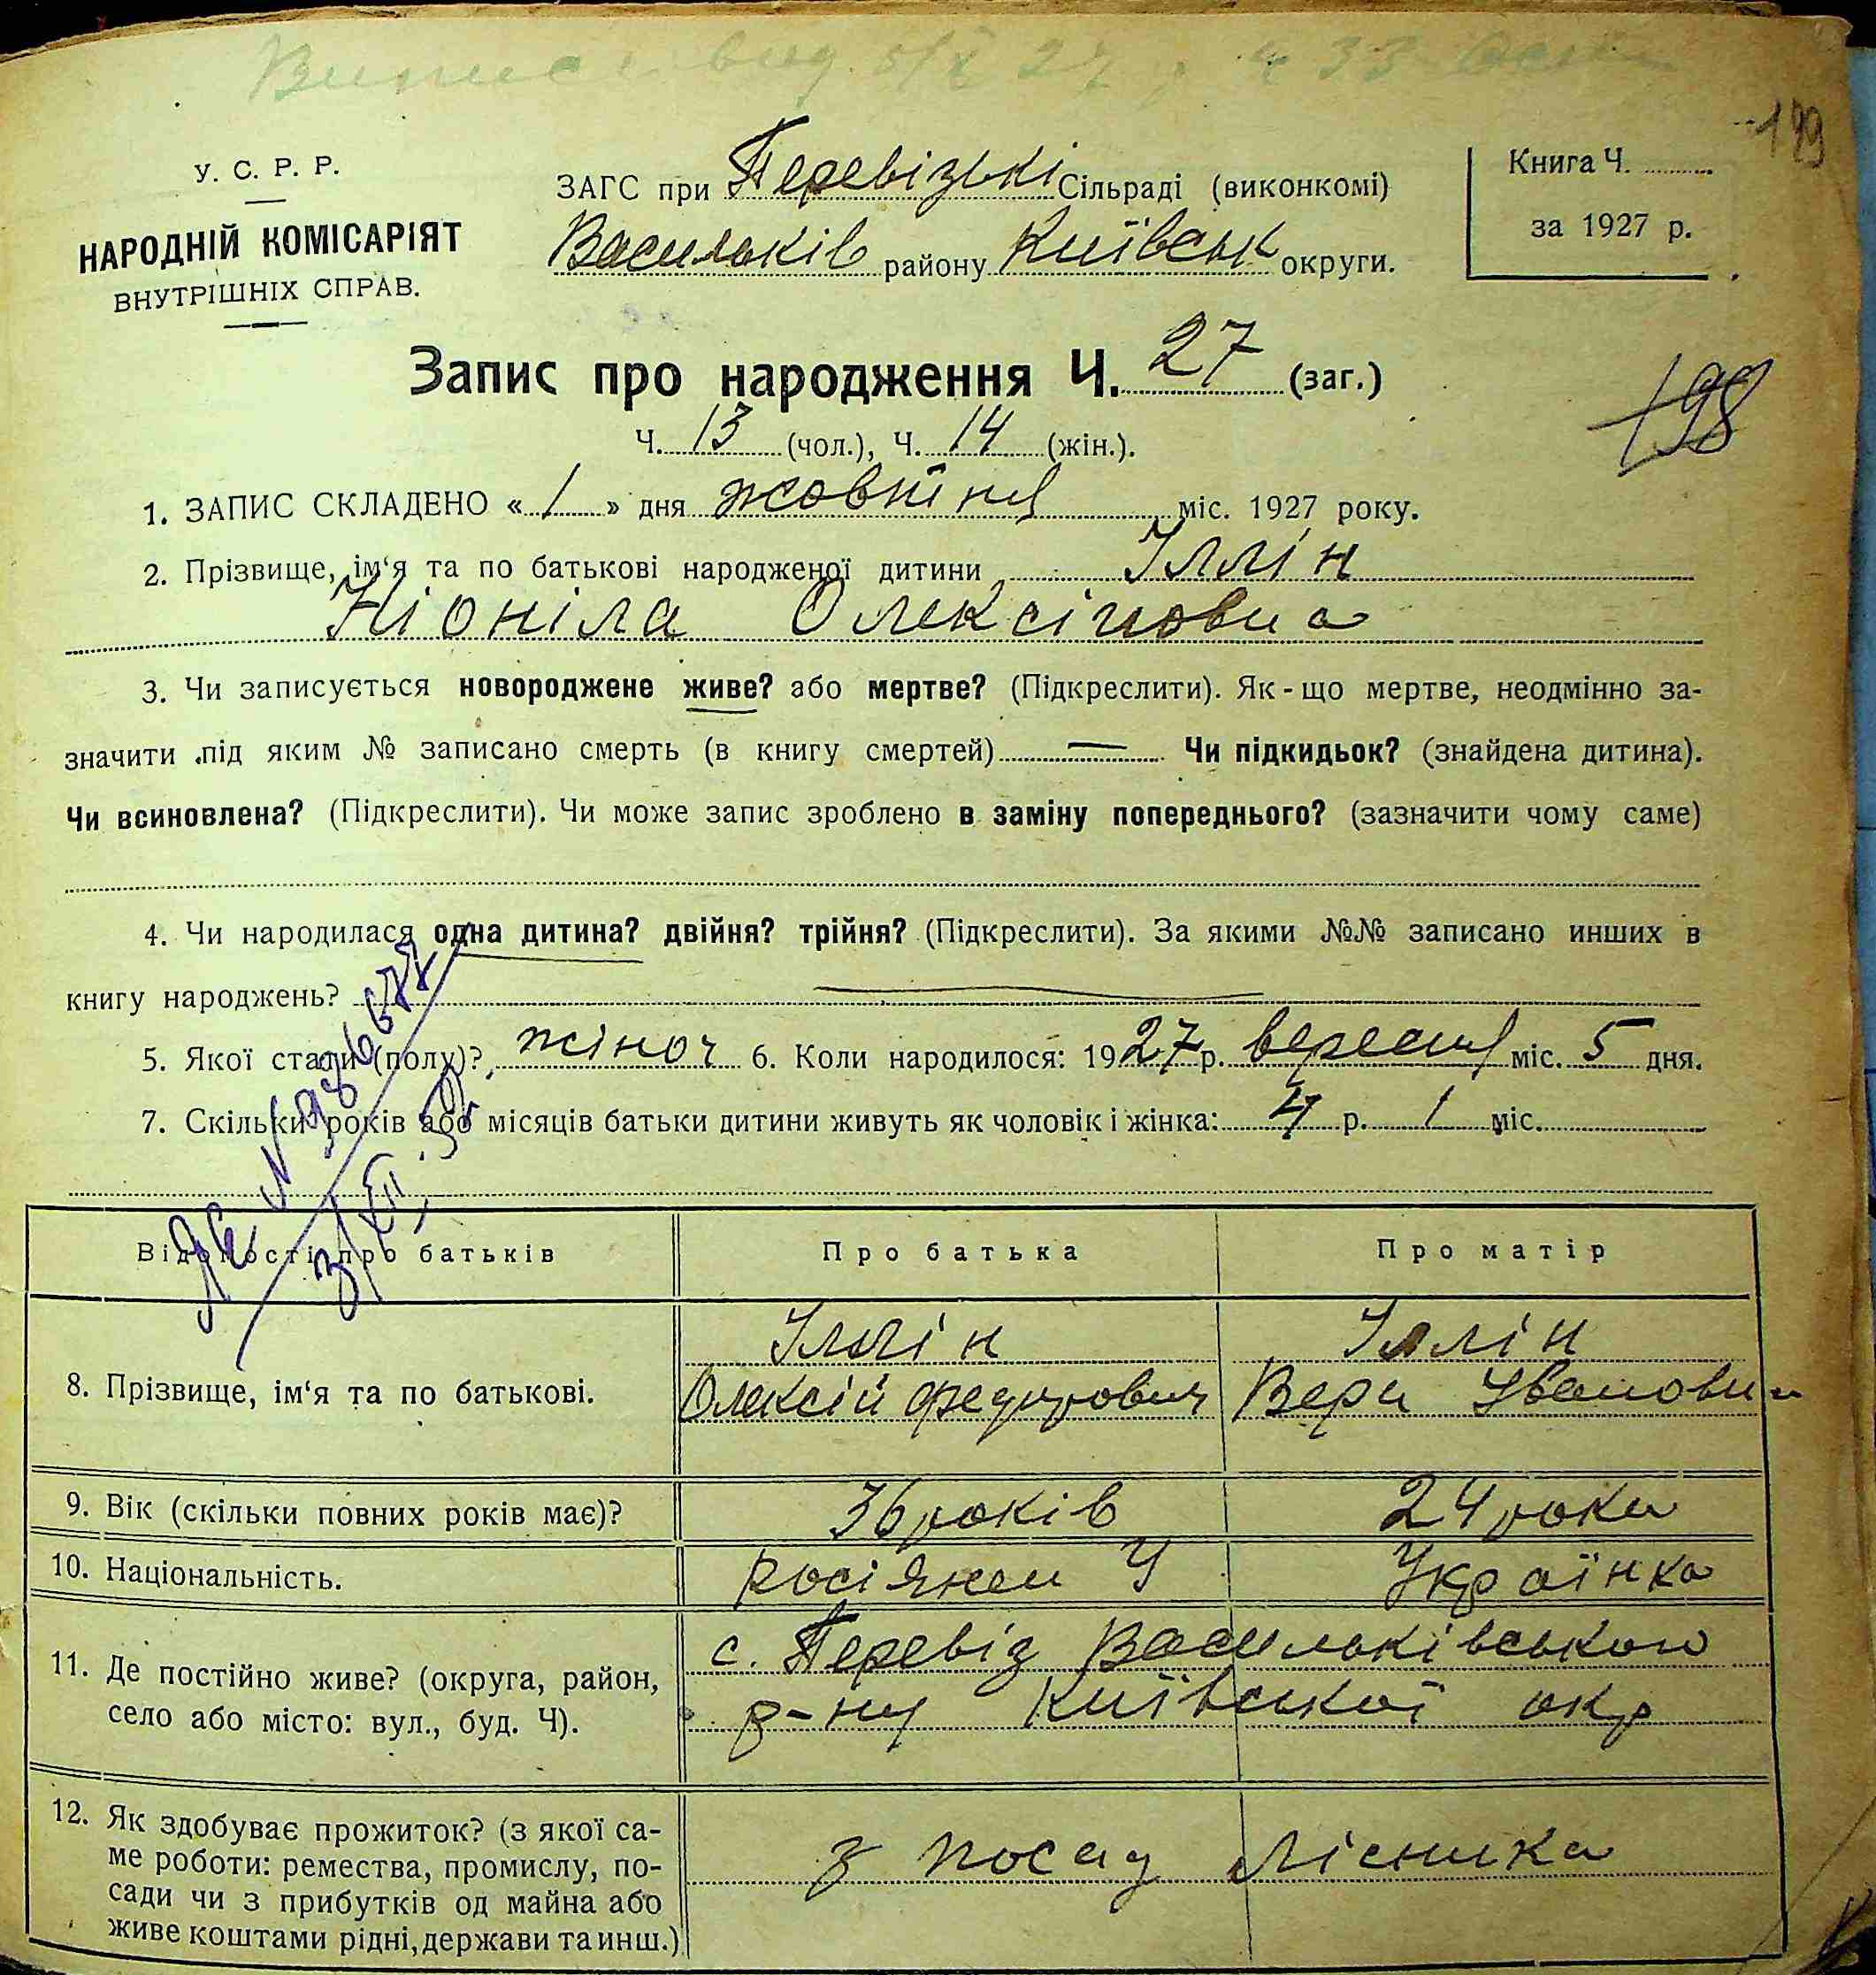 Випис вид. 5/X 27 р. ч 33
199
У. С. Р. Р.
НАРОДНІЙ КОМІСАРІЯТ
ВНУТРІШНІХ СПРАВ.
ЗАГС при Перевізькі Сільраді (виконкомі)
Васильків району Київськ округи.
Книга Ч. ..........
за 1927 р.
Запис про народження Ч. 27 (заг.)
Ч. 13 (чол.), Ч. 14 (жін.).
198
1. ЗАПИС СКЛАДЕНО « 1 » дня жовтня міс. 1927 року.
2. Прізвище, ім'я та по батькові народженої дитини Іллін
Ніоніла Олексіповна
3. Чи записується новороджене живе? або мертве? (Підкреслити). Як-що мертве, неодмінно за-
значити під яким № записано смерть (в книгу смертей) — Чи підкидьок? (знайдена дитина).
Чи всиновлена? (Підкреслити). Чи може запис зроблено в заміну попереднього? (зазначити чому саме)
4. Чи народилася одна дитина? двійня? трійня? (Підкреслити). За якими №№ записано инших в
книгу народжень?
5. Якої стати (полу)? жіноч 6. Коли народилося: 1927 р. вересня міс. 5 дня.
7. Скільки років або місяців батьки дитини живуть як чоловік і жінка: 4 р. 1 міс.
Відомості про батьків Про батька Про матір
8. Прізвище, ім'я та по батькові.
Іллін
Олексій Федорович
Іллін
Вера Івановна
9. Вік (скільки повних років має)? 36 років 24 роки
10. Національність. росіянин У Українка
11. Де постійно живе? (округа, район,
село або місто: вул., буд. Ч).
с. Перевіз Васильківського
р-ну Київської окр
12. Як здобуває прожиток? (з якої са-
ме роботи: ремества, промислу, по-
сади чи з прибутків од майна або
живе коштами рідні, держави та инш.)
з посад лісника